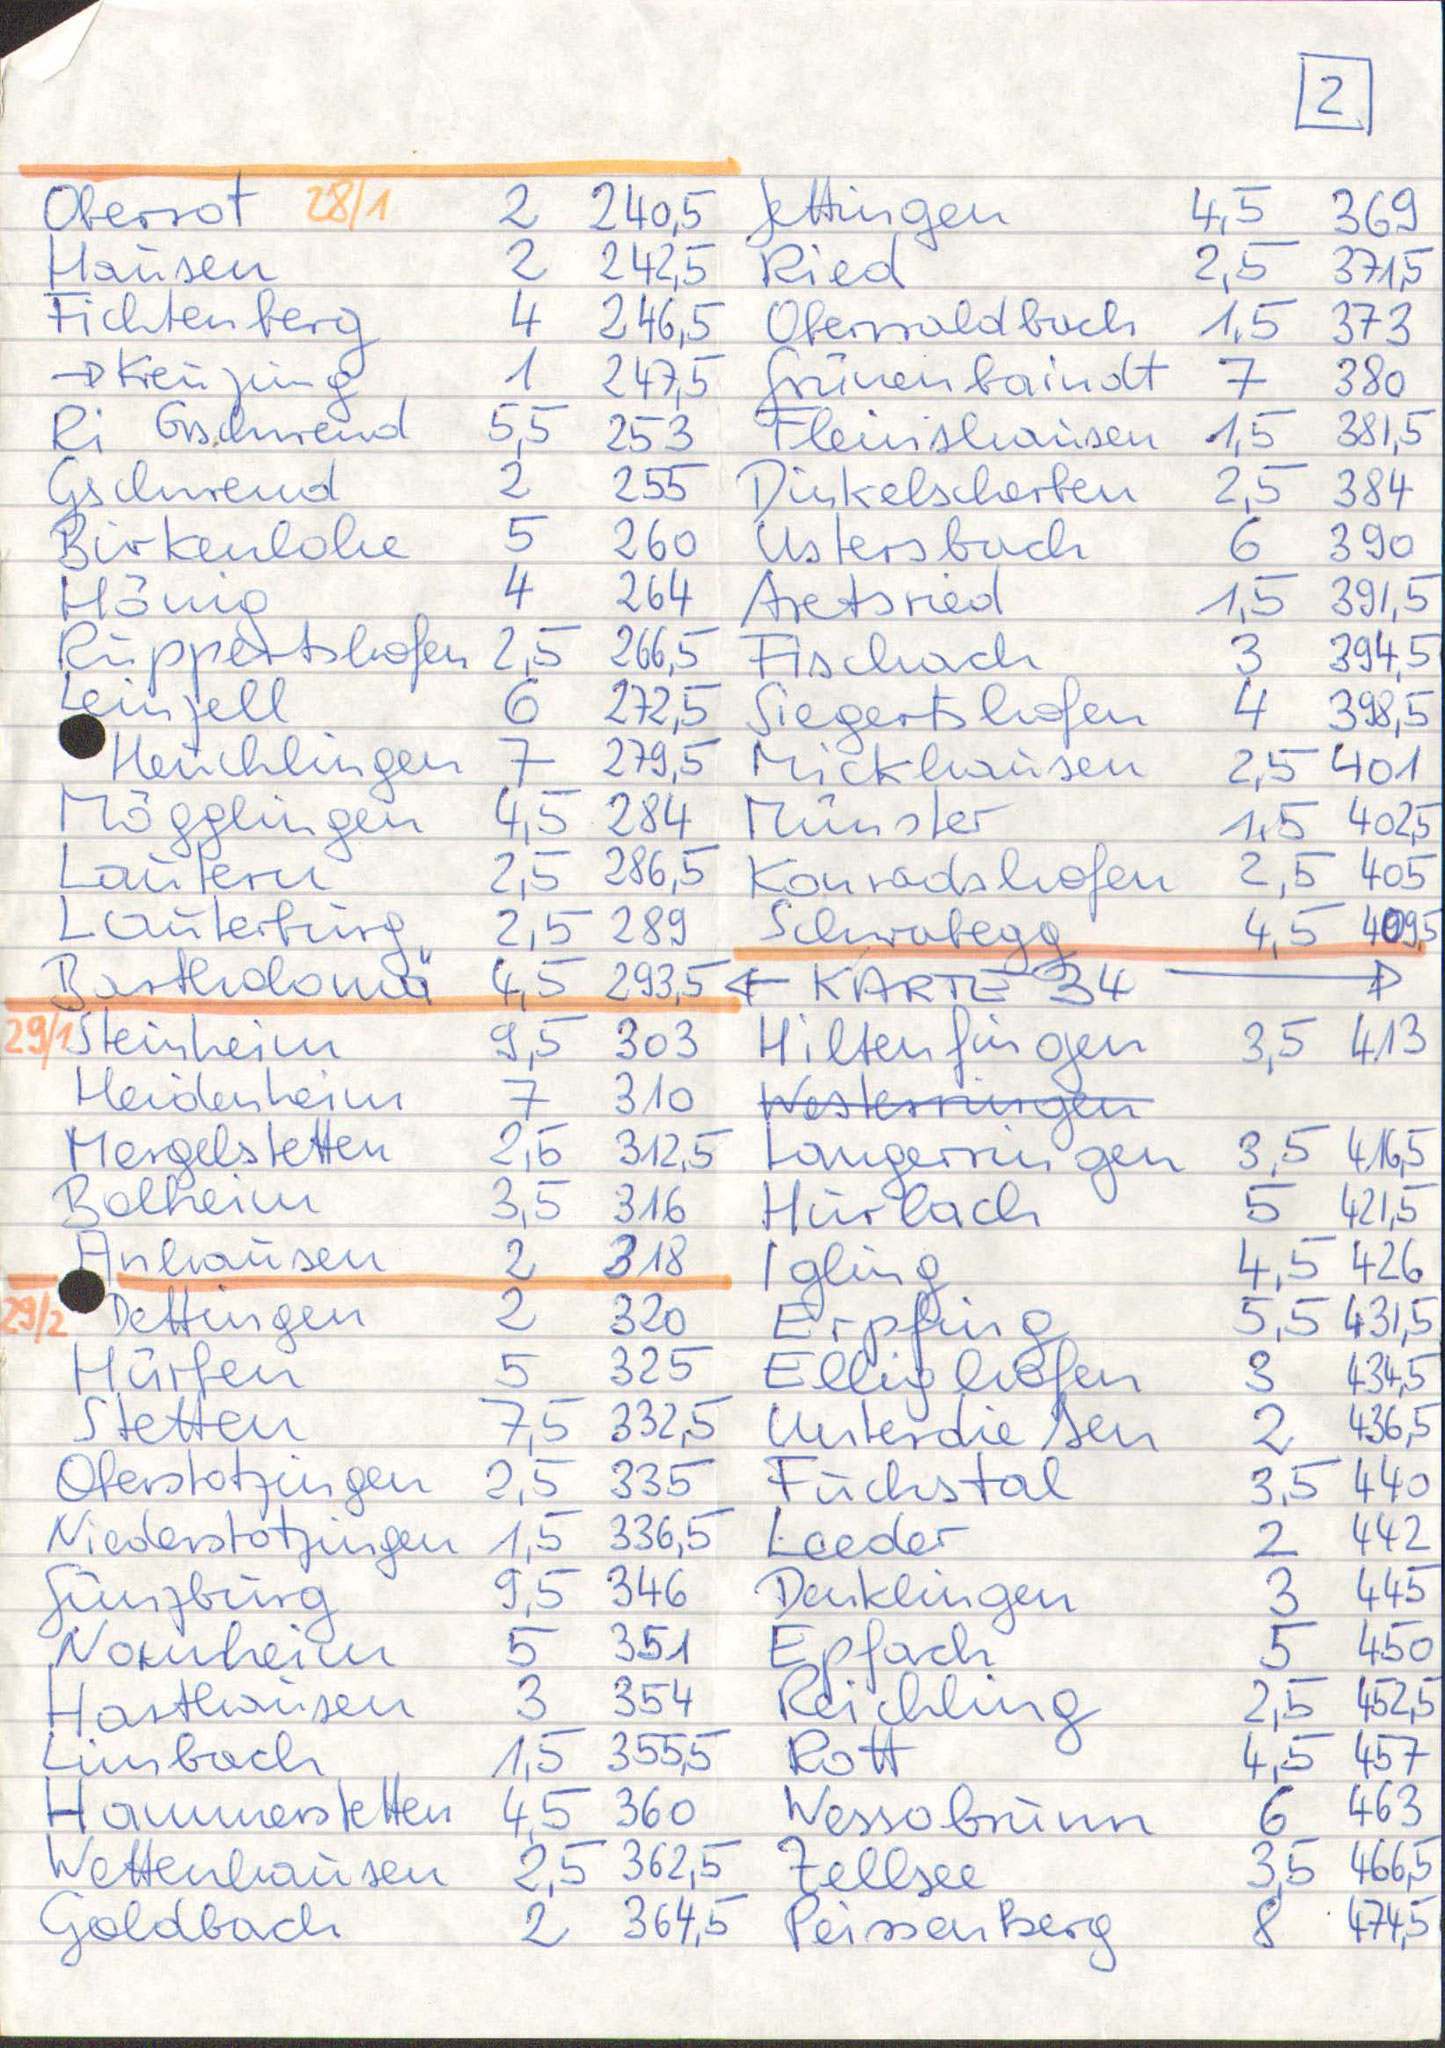 2
Oberrot 28/1 2 240,5
Hausen 2 242,5
Fichtenberg 4 246,5
→ Kreuzung 1 247,5
Ri Gschwend 5,5 253
Gschwend 2 255
Birkenlohe 5 260
Hönig 4 264
Ruppertshofen 2,5 266,5
Leinzell 6 272,5
Heuchlingen 7 279,5
Mögglingen 4,5 284
Lautern 2,5 286,5
Lauterburg 2,5 289
Bartholomä 4,5 293,5
29/1 Steinheim 9,5 303
Heidenheim 7 310
Mergelstetten 2,5 312,5
Bolheim 3,5 316
Anhausen 2 318
29/2 Dettingen 2 320
Hürben 5 325
Stetten 7,5 332,5
Oberstotzingen 2,5 335
Niederstotzingen 1,5 336,5
Günzburg 9,5 346
Nornheim 5 351
Harthausen 3 354
Limbach 1,5 355,5
Hammerstetten 4,5 360
Wettenhausen 2,5 362,5
Goldbach 2 364,5
Jettingen 4,5 369
Ried 2,5 371,5
Oberwaldbach 1,5 373
Grünenbaindt 7 380
Fleinshausen 1,5 381,5
Dinkelscherben 2,5 384
Ustersbach 6 390
Aretsried 1,5 391,5
Fischach 3 394,5
Siegertshofen 4 398,5
Mickhausen 2,5 401
Münster 1,5 402,5
Konradshofen 2,5 405
Schwabegg 4,5 409,5
← KARTE 34 →
Hiltenfingen 3,5 413
Westerringen
Langerringen 3,5 416,5
Hurlach 5 421,5
Igling 4,5 426
Erpfing 5,5 431,5
Ellighofen 3 434,5
Unterdiessen 2 436,5
Fuchstal 3,5 440
Leeder 2 442
Denklingen 3 445
Epfach 5 450
Reichling 2,5 452,5
Rott 4,5 457
Wessobrunn 6 463
Zellsee 3,5 466,5
Peissenberg 8 474,5